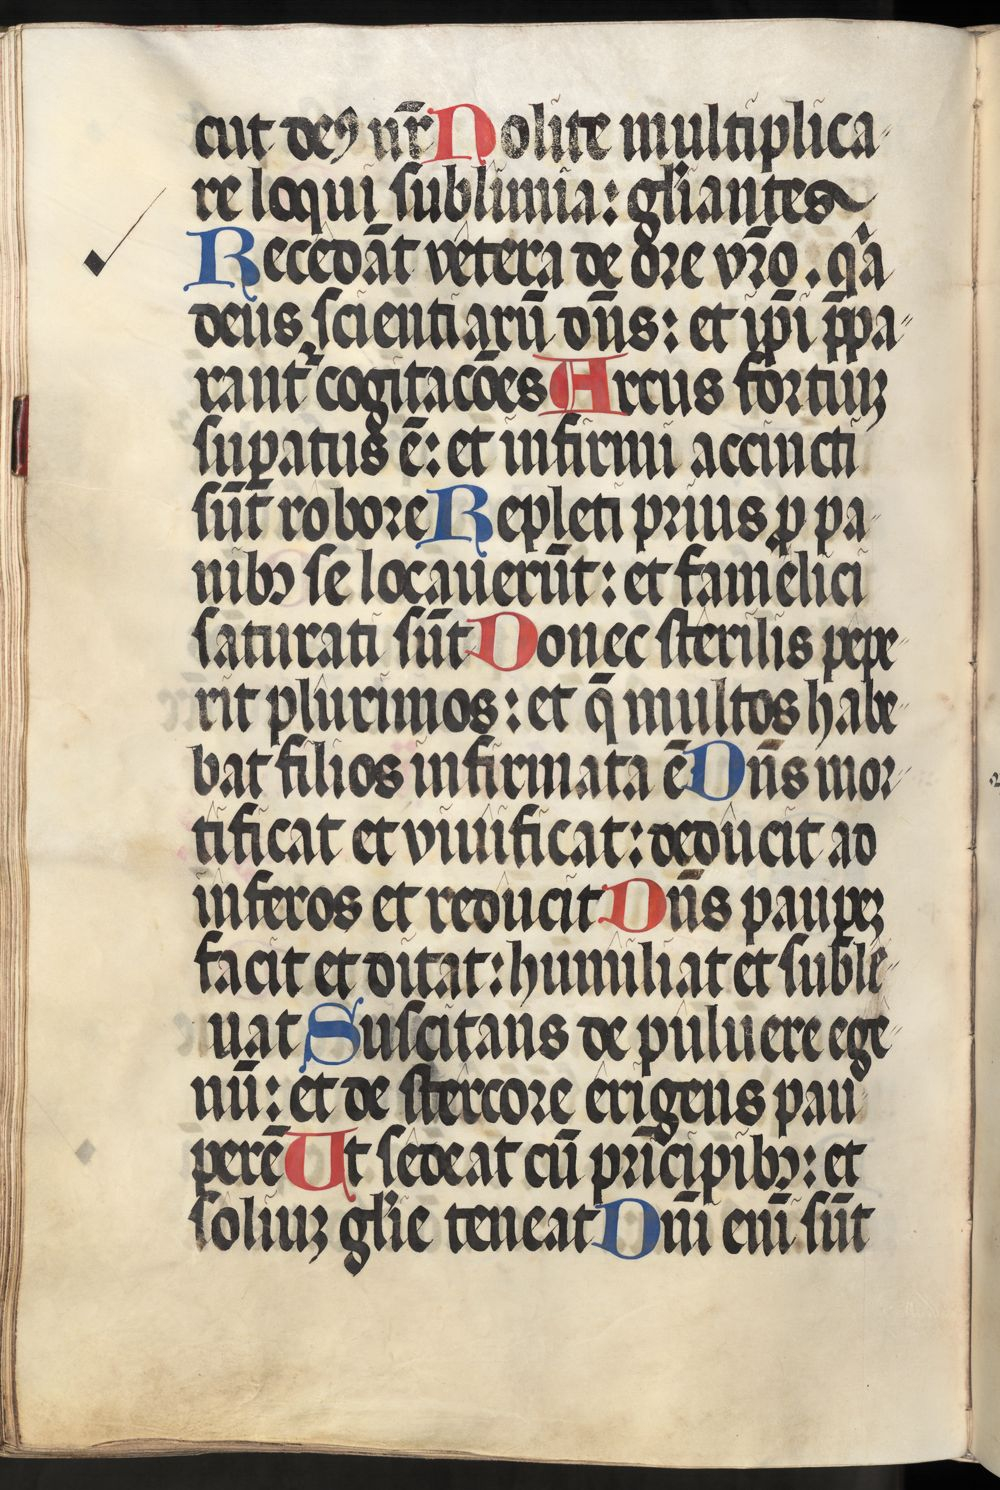 cut deꝰ nr̄ Nolite multiplica
re loqui sublimia: gl̄iantes
Recedāt vetera de ore vr̄o. q̄a
deus scientiarū dn̄s: et ip̄i p̄pa
rant᷑ cogitacōes Arcus fortiuꝫ
suꝑatus ē: et infirmi accincti
sūt robore Repleti prius ꝓ pa
nibꝫ se locauerūt: et famelici
saturati sūt Donec sterilis pepe
rit plurimos: et q̄ multos habe
bat filios infirmata ē Dn̄s mor
tificat et viuificat: deducit ad
inferos et reducit Dn̄s pauꝑeꝫ
facit et ditat: humiliat et suble
uat Suscitans de puluere ege
nū: et de stercore erigens pau
perē Ut sedeat cū prīcipibꝫ: et
soliuꝫ gl̄ie teneat Dn̄i eni᷑ sūt